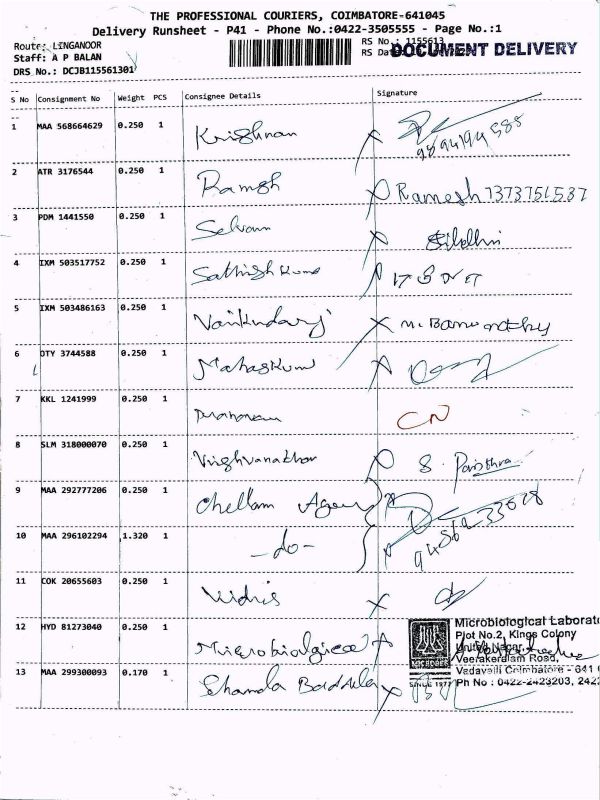 THE PROFESSIONAL COURIERS, COIMBATORE-641045
Delivery Runsheet - P41 - Phone No.:0422-3505555 - Page No.:1
Route: LINGANOOR
RS No.: 1155613
Staff: A P BALAN
RS Dat
DOCUMENT DELIVERY
DRS No.: DCJB115561301
S No Consignment No Weight PCS Consignee Details Signature
1 MAA 568664629 0.250 1 Krishnan 9894194585
2 ATR 3176544 0.250 1 Ramesh Ramesh 7373751537
3 PDM 1441550 0.250 1 Selvam
4 IXM 503517752 0.250 1 Sathish Kumar
5 IXM 503486163 0.250 1
6 DTY 3744588 0.250 1
7 KKL 1241999 0.250 1 CN
8 SLM 318000070 0.250 1 Vishvanathan S. Pavithra
9 MAA 292777206 0.250 1 Chellam Agency
10 MAA 296102294 1.320 1 -do-
11 COK 20655603 0.250 1
12 HYD 81273040 0.250 1 Microbiological
Microbiological Laborato
Plot No.2, Kings Colony
United Nagar,
Veerakeralam Road,
Vadavalli Coimbatore - 641
Ph No : 0422-2423203, 242
MICROBER
SINCE 1977
13 MAA 299300093 0.170 1